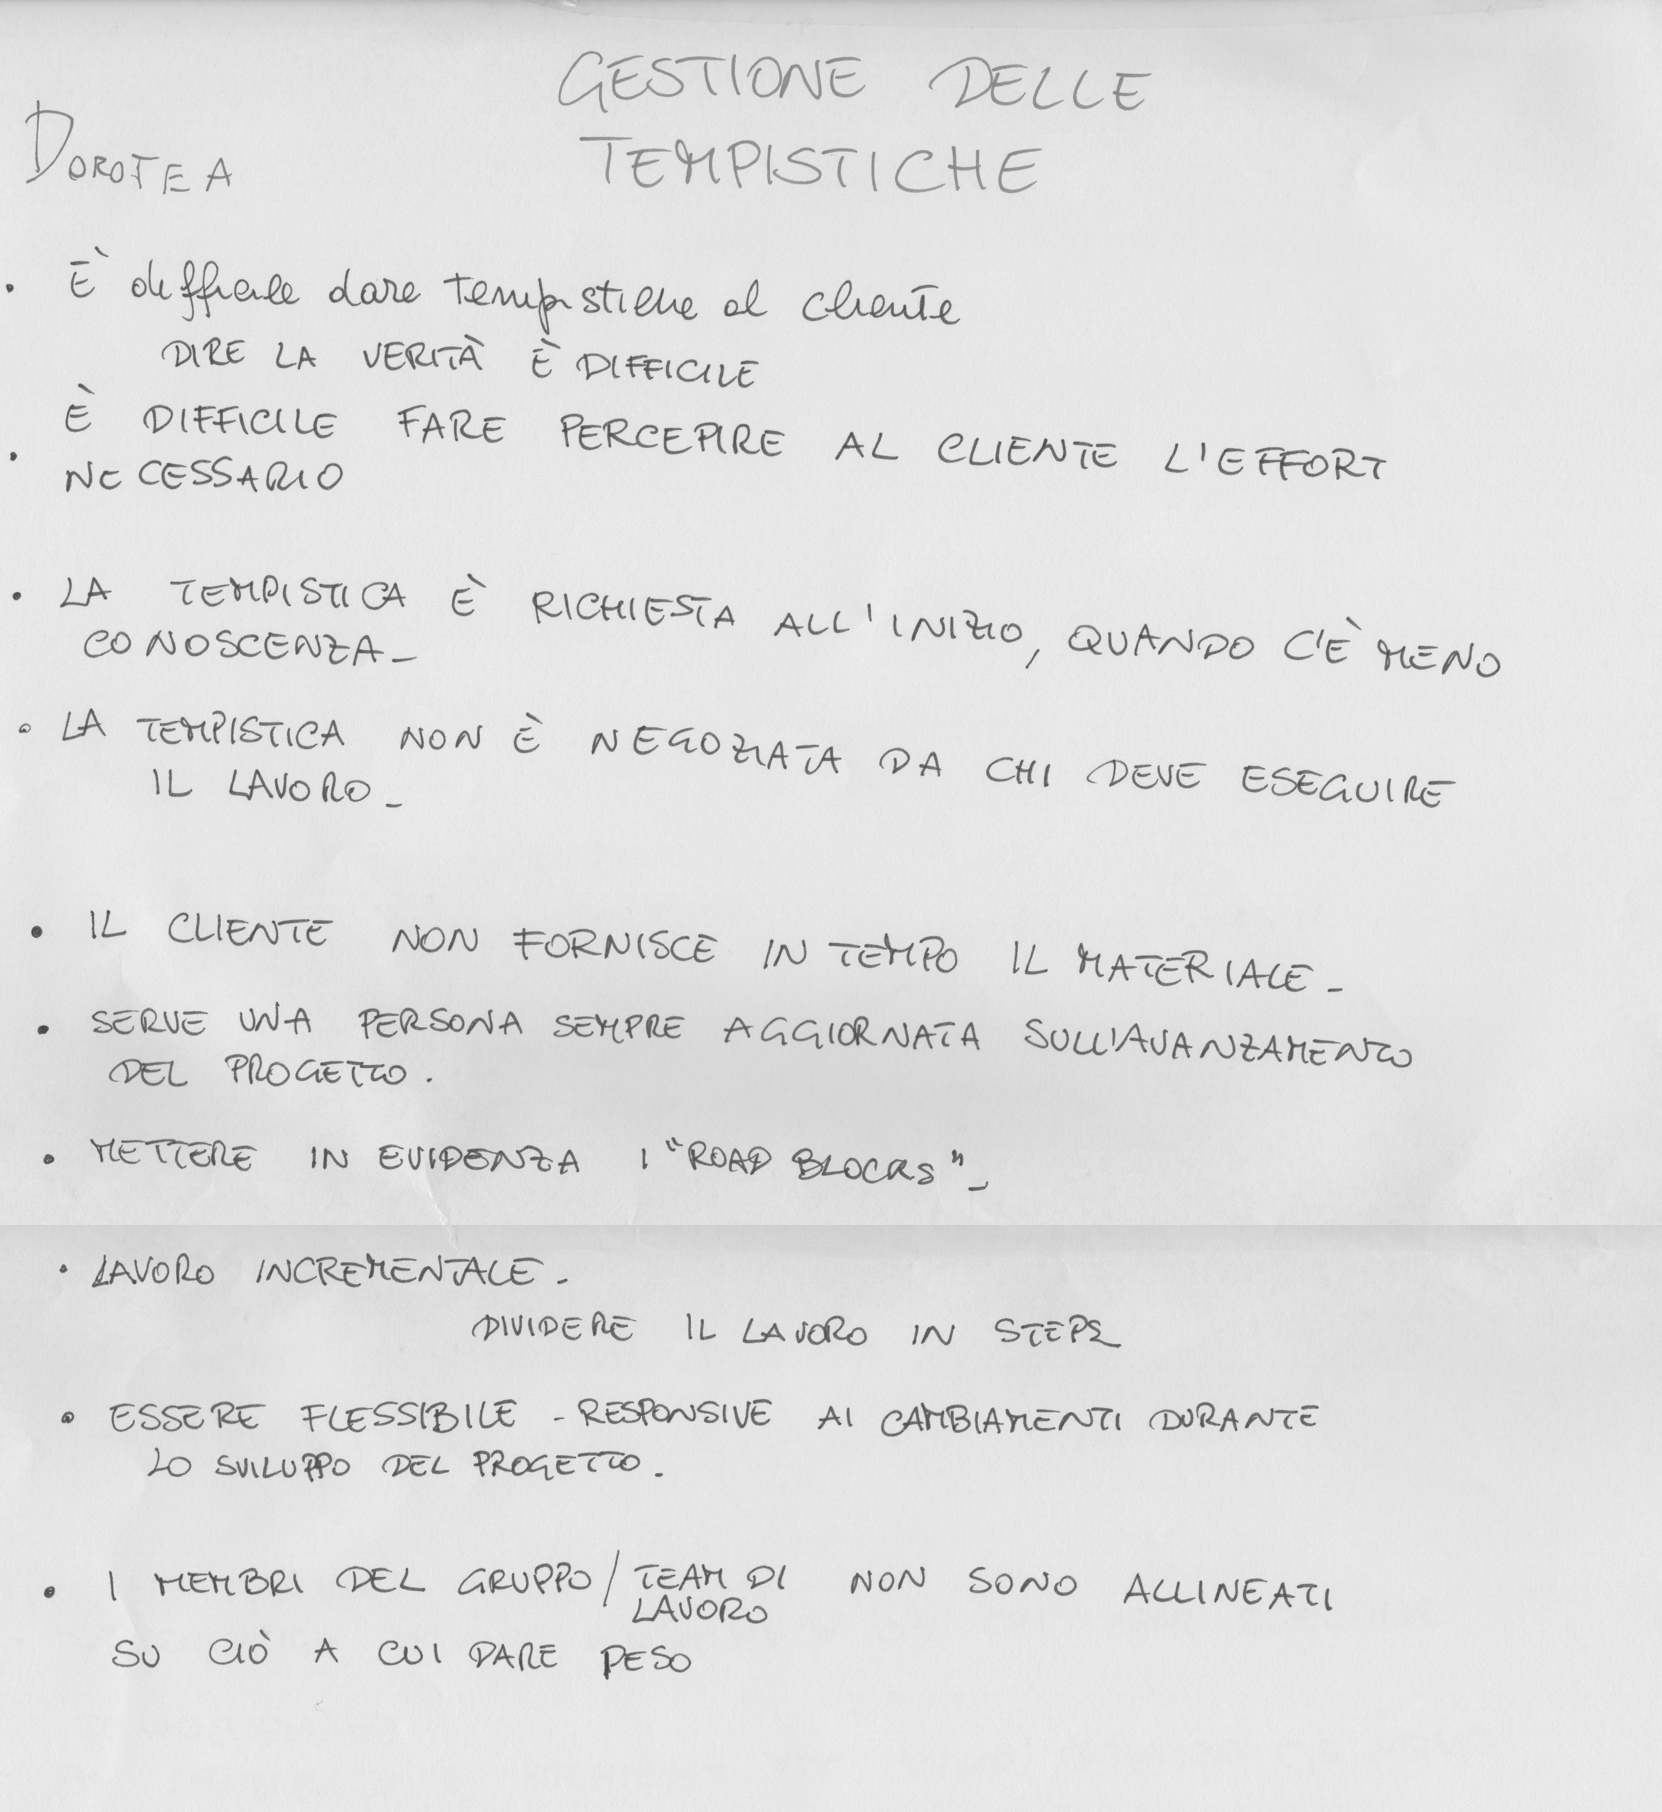 GESTIONE DELLE
TEMPISTICHE
DOROTEA
• È difficile dare tempistiche al cliente
DIRE LA VERITÀ È DIFFICILE
• È DIFFICILE FARE PERCEPIRE AL CLIENTE L'EFFORT
NECESSARIO
• LA TEMPISTICA È RICHIESTA ALL'INIZIO, QUANDO C'È MENO
CONOSCENZA -
• LA TEMPISTICA NON È NEGOZIATA DA CHI DEVE ESEGUIRE
IL LAVORO -
• IL CLIENTE NON FORNISCE IN TEMPO IL MATERIALE -
• SERVE UNA PERSONA SEMPRE AGGIORNATA SULL'AVANZAMENTO
DEL PROGETTO.
• METTERE IN EVIDENZA I "ROAD BLOCKS" -
• LAVORO INCREMENTALE -
DIVIDERE IL LAVORO IN STEPS
• ESSERE FLESSIBILE - RESPONSIVE AI CAMBIAMENTI DURANTE
LO SVILUPPO DEL PROGETTO.
• I MEMBRI DEL GRUPPO / TEAM DI NON SONO ALLINEATI
LAVORO
SU CIÒ A CUI DARE PESO